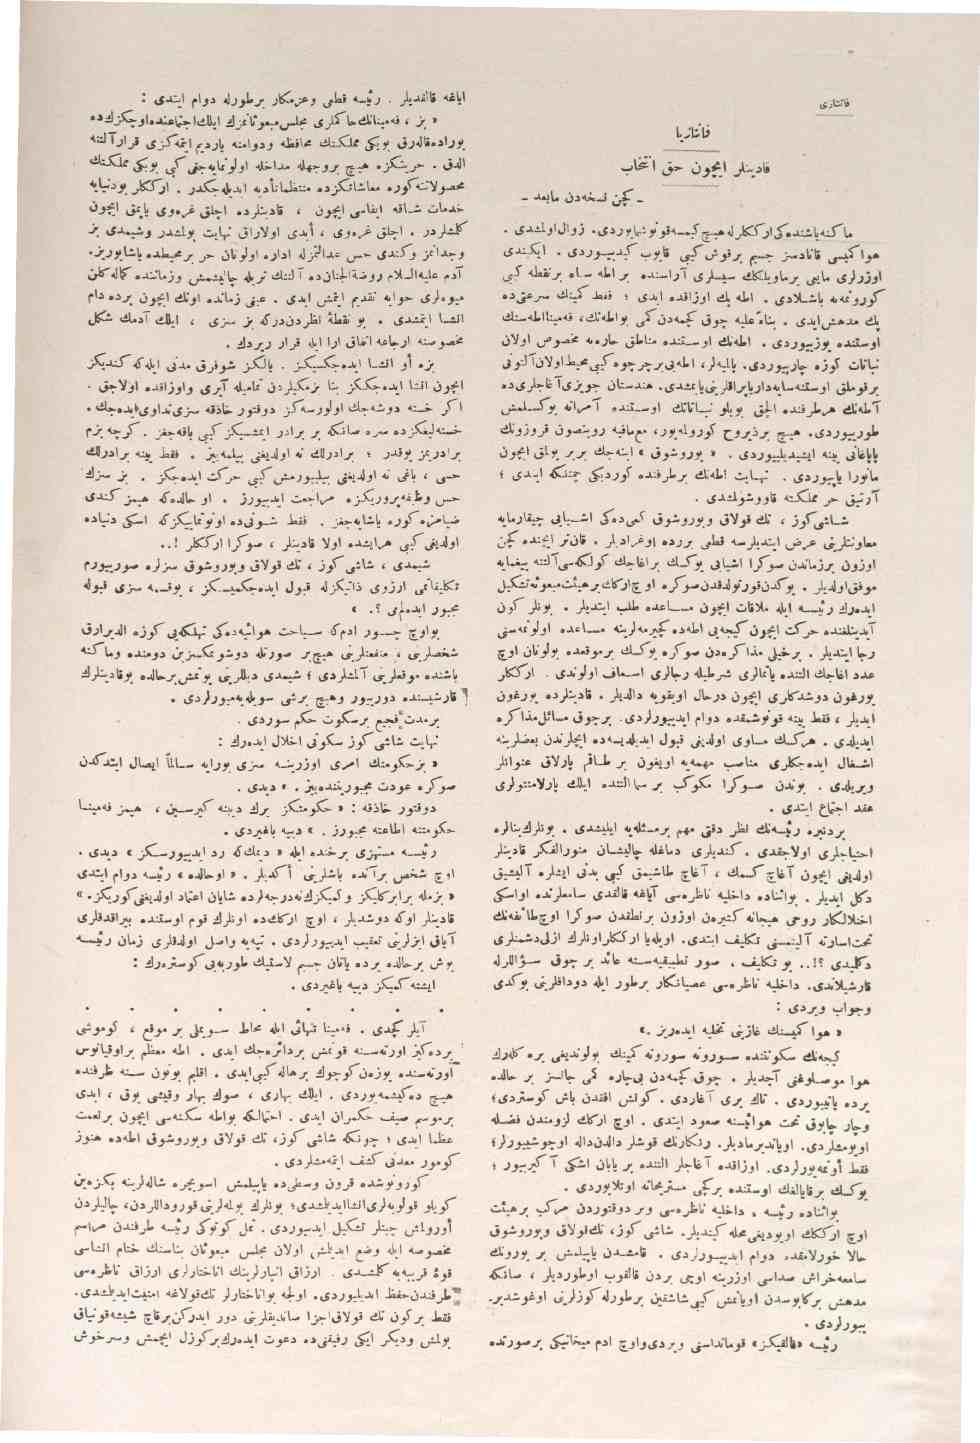 فانتازی
فانتازیا
قادینلر ایچون حق انتخاب
ـ کچن نسخه‌دن مابعد ـ
ماکنه‌باشنده‌کی ارککلرله هیچ کیمسه قونوشمایوردی. زوال اولمشدی .
هوا کمیسی قانادسز جسیم برقوش کبی قایوب کیدییوردی . ایکیندی
اوزرلری مایی برماویلکك سیسلری آراسنده بر اطه سیاه برنقطه کبی
کورونمه‌یه باشلادی . اطه پك اوزاقده ایدی ؛ فقط کمینك سرعتی‌ده
پك مدهش‌ایدی . بناءً علیه چوق کچمه‌دن کمی بواطه‌نك، فه‌مینا اطه‌سنك
اوستنده یوزییوردی . اطه‌نك اوستنده مناطق حاره‌یه مخصوص اولان
نباتات کوزه چارپیوردی.
آطه‌نك هرطرفنده
طورییوردی. هیچ برذیروح کورولمه‌یور، مع‌مافیه روبنصون قروزونك
پاپاغانی یینه ایشیدیلییوردی . « بوروشوق » اینه‌جك بریر بولمق ایچون
مانورا یاپییوردی . نهایت اطه‌نك برطرفنده کوردیکی چمنلکه ایندی ؛
آرتیق حر مملکته قاووشولمشدی .
شاشی کوز ، تك قولاق وبوروشوق کمی‌ده‌کی اشیایی چیقارمایه
معاونتلرینی عرض ایتدیلرسه قطعی بررده اوغرادیلر .
اوزون برزماندن صوکرا اشیایی یوکسك براغاجك کولکه‌سی آلتنه ییغمایه
موفق اولدیلر . یوکدن قورتولدقدن صوکره اوچ ارکك برهیئت مبعوثه تشکیل
ایده‌رك رئیسه ایله ملاقات ایچون مساعده طلب ایتدیلر . بونلر کون
آیدینلغنده حرکت ایچون کیجه‌یی اطه‌ده کچیرمه‌لرینه مساعده اولونمه‌سنی
رجا ایتدیلر . برخیلی مذاکره‌دن صوکره یوکسك برموقعده بولونان اوچ
عدد اغاجك التنده یاتمالری شرطیله رجالری اسعاف اولوندی . ارککلر
یورغون دوشدکلری ایچون درحال اویقویه دالدیلر . قادینلرده یورغون
ایدیلر ، فقط یینه قونوشمقده دوام ایدییورلردی. برچوق مسائل مذاکره
ایدیلدی . هرکسك مساوی اولدیغنی قبول ایدیلدیسه‌ده ایچلرندن بعضلرینه
اشغال ایده‌جکلری مناصب مهمه‌یه اویغون بر طاقم پارلاق عنوانلر
ویریلدی . بوندن صوکرا مکوکب بر سما التنده ایلك پارلامنتولری
عقد اجتماع ایتدی .
بردنبره رئیسه‌نك نظر دقتی مهم برمسئله‌یه ایلیشدی . بونلرك بنالره
احتیاجلری اولاجقدی . کندیلری دماغله چالیشان منورالفکر قادینلر
اولدیغی ایچون آغاچ کسمك ، آغاج طاشیمق کبی بدنی ایشلره آلیشیق
دکل ایدیلر . بواثناده داخلیه ناظره‌سی آیاغه قالقدی سامعلرنده اواسکی
اختلالکار روحی هیجانه کتیره‌ن اوزون برنطقدن صوکرا اوچ طائفه‌نك
تحت اسارته آلینمسنی تکلیف ایتدی. اویله‌یا ارککلر اونلرك ازلی دشمنلری
دکلمیدی ؟!.. بو تکلیف ، صور تطبیقیه‌سنه عائد بر چوق سؤاللرله
قارشیلاندی. داخلیه ناظره‌سی عصیانکار برطور ایله دوداقلرینی بوکدی
وجواب ویردی :
« هوا کمیسنك غازینی تخلیه ایده‌ریز .»
کیجه‌نك سکوتنده سورونه سورونه کمینك بولوندیغی یره کله‌رك
هوا موصلوغنی آچدیلر . چوق کچمه‌دن بیچاره کمی جانسز بر حالده
یرده یاتییوردی . تاك یری آغاردی . کونش افقدن باش کوستردی؛
وچار چابوق تحت هوائیسنه صعود ایتدی . اوچ ارکك لزومندن فضله
اویومشلردی. اویاندیرمادیلر. رنکارنك قوشلر دالدن‌داله اوچوشییورلر؛
فقط أوتمه‌یورلردی. اوزاقده آغاجلر التنده بر یابان اشکی آکیرییور ؛
یوکسك برقایالغك اوستنده برکچی مستریحانه اوتلایوردی .
بواثناده رئیسه ، داخلیه ناظره‌سی وبر دوقتوردن مرکب برهیئت
اوچ ارککك اویودیغی محله کیتدیلر. شاشی کوز، تك اولاق وبوروشوق
حالا خورلامقده دوام ایدییورلردی . قامشدن یاپیلمش بر بورونك
سامعه‌خراش صداسی اوزرینه اوچی بردن قالقوب اوطوردیلر ، سانکه
مدهش برکابوسدن اویانمش کبی شاشقین برطورله کوزلرینی اوغوشدیر.
ییورلردی .
رئیسه «قالقیکز» قومانداسنی ویردی واوچ ادم میخانیکی برصورتده
ایاغه قالقدیلر . رئیسه قطعی وعزمکار برطورله دوام ایتدی :
بوراده قاله‌رق بویکی مملکتك محافظه ودوامنه یاردیم ایتمه‌کزی قرار آلتنه
الدق . حریتکزه هیچ بروجهله مداخله اولونمایه‌جق کبی بویکی مملکتك
محصولاتنه کوره معاشاتکزده منتظماً تأدیه ایدیله‌جکدر . ارککلر بودنیایه
خدمات شاقه ایفاسی ایچون ، قادینلرده آچلق غره‌وی یاپمق ایچون
کلمشلردر . آچلق غره‌وی ، أبدی اولاراق نهایت بولمشدر وشیمدی بز
وجدانمز وکندی حس عدالتمزله اداره اولونان حر برمحیطده یاشایوریز.
آدم علیه‌السلام روضة‌الجنان‌ده آلتنك تریله چالیشمش وزماننده کماله کلن
میوه‌لری حوایه تقدیم ایتمش ایدی . عینی زمانده اونك ایچون برده دام
انشا ایتمشدی . بو نقطۀ نظردندرکه بز سزی ، ایلك آدمك شکل
مخصوصنه ارجاعه اتفاق ارا ایله قرار ویردك .
بزه أو انشا ایده‌جکسیکز . یالکز شوفرق مدنی ایله‌که کندیکز
ایچون انشا ایده‌جککز بنا بزمکیلردن تمامیله آیری واوزاقده اولاجق .
اکر خسته دوشه‌جك اولورسه‌کز دوقتور حاذقه سزی تداوی ایده‌جك .
خسته‌لیغکزده سزه سانکه بر برادر ایمشسیکز کبی باقه‌جغز . کرچه بزم
برادریمز یوقدر ؛ برادرلك نه اولدیغنی بیلمه‌ییز . فقط یینه برادرلك
حسی ، یاغی نه اولدیغنی بیلییورمش کبی حرکت ایده‌جکز . بز سزك
حس وظیفه‌پروریکزه مراجعت ایدییورز . او حالده‌که هیمز کندی
ضیامزه کوره یاشایه‌جغز . فقط شونی‌ده اونوتماییکزکه اسکی دنیاده
اولدیغی کبی هرایشده اولا قادینلر ، صوکرا ارککلر !..
شیمدی ، شاشی کوز ، تك قولاق وبوروشوق سزلره صورییورم
تکلیفاتمی آرزوی ذاتیکزله قبول ایده‌جکمیسکز ، یوقسه سزی قبوله
مجبور ایده‌لم‌می ؟. »
بواوچ جسور ادم‌که سیاحت هوائیه‌ده‌کی تهلکه‌یی کوزه الدیرارق
شخصلرینی ، منفعتلرینی هیچ بر صورتله دوشونمکسزین دومنده وماکنه
باشنده موقعلرینی آلمشلردی ؛ شیمدی دیللرینی یوتمش برحالده بوقادینلرك
قارشیسنده دورییور وهیچ برشی سویله‌یه‌مییورلردی .
برمدت فجیع برسکوت حکم سوردی .
نهایت شاشی کوز سکوتی اخلال ایده‌رك :
« بزحکومتك امری اوزرینه سزی بورایه سالماً ایصال ایتدکدن
صوکره عودت مجبوریتنده‌ییز . » دیدی .
دوقتور حاذقه : « حکومتکز یرك دیبنه کیرسین ، هیمز فه‌مینا
حکومتنه اطاعته مجبورز . » دییه باغیردی .
رئیسه مستهزی برخنده ایله « دیمك‌که رد ایدییورسکز » دیدی .
اوچ شخص برآنده باشلرینی أکدیلر . «اوحالده» رئیسه دوام ایتدی
« بزمله برابرکلیکز وکمیکزك نه‌درجه‌لرده شایان اعتماد اولدیغنی کوریکز.»
قادینلر اوکه دوشدیلر ، اوچ ارکك‌ده اونلرك قوم اوستنده بیراقدقلری
آیاق ایزلرینی تعقیب ایدییورلردی . تپه‌یه واصل اولدقلری زمان رئیسه
بوش برحالده یرده یاتان جسیم لاستیك طوربه‌یی کوستره‌رك :
ایشته کمیکز دییه باغیردی .
. . . . . . . .
آیلر کچدی . فه‌مینا تنهائی ایله محاط سویملی بر موقع ، کوموشی
پرده‌کبز اورته‌سنه قونمش بردائره‌جك ایدی . اطه معظم براوقیانوس
اورته‌سنده یوزه‌ن کوجوك برهاله کبی‌ایدی . اقلیم بوتون سنه ظرفنده
هیچ ده‌کیشمه‌یوردی . ایلك بهاری ، صوك بهار وقیشی یوق ، ابدی
برموسم صیف حکمران ایدی . احتمالکه بواطه سکنه‌سی ایچون برنعمت
عظما ایدی ؛ چونکه شاشی کوز، تك قولاق وبوروشوق اطه‌ده هنوز
کومور معدنی کشف ایتمه‌مشلردی .
کورونوشده قرون وسطی‌ده یاپیلمش اسویچره شاله‌لرینه بکزه‌ین
اورولمش چیتلر تشکیل ایدییوردی. تمل کوتوکی رئیسه طرفندن مراسم
مخصوصه ایله وضع ایدیلمش اولان مجلس مبعوثان بناسنك ختام انشاسی
قوۀ قریبه‌یه کلمشدی . ارزاق انبارلرینك اناختارلری ارزاق ناظره‌سی
طرفندن حفظ ایدیلییوردی. اولجه بواناختارلر تك قولاغه امنیت ایدیلمشدی.
فقط برکون تك قولاق اجزا صاندیقلرینی دور ایدرکن برقاچ شیشه قونیاق
بولمش ودیکر ایکی رفیقنی‌ده دعوت ایده‌رك برکوزل ایچمش وسرخوش